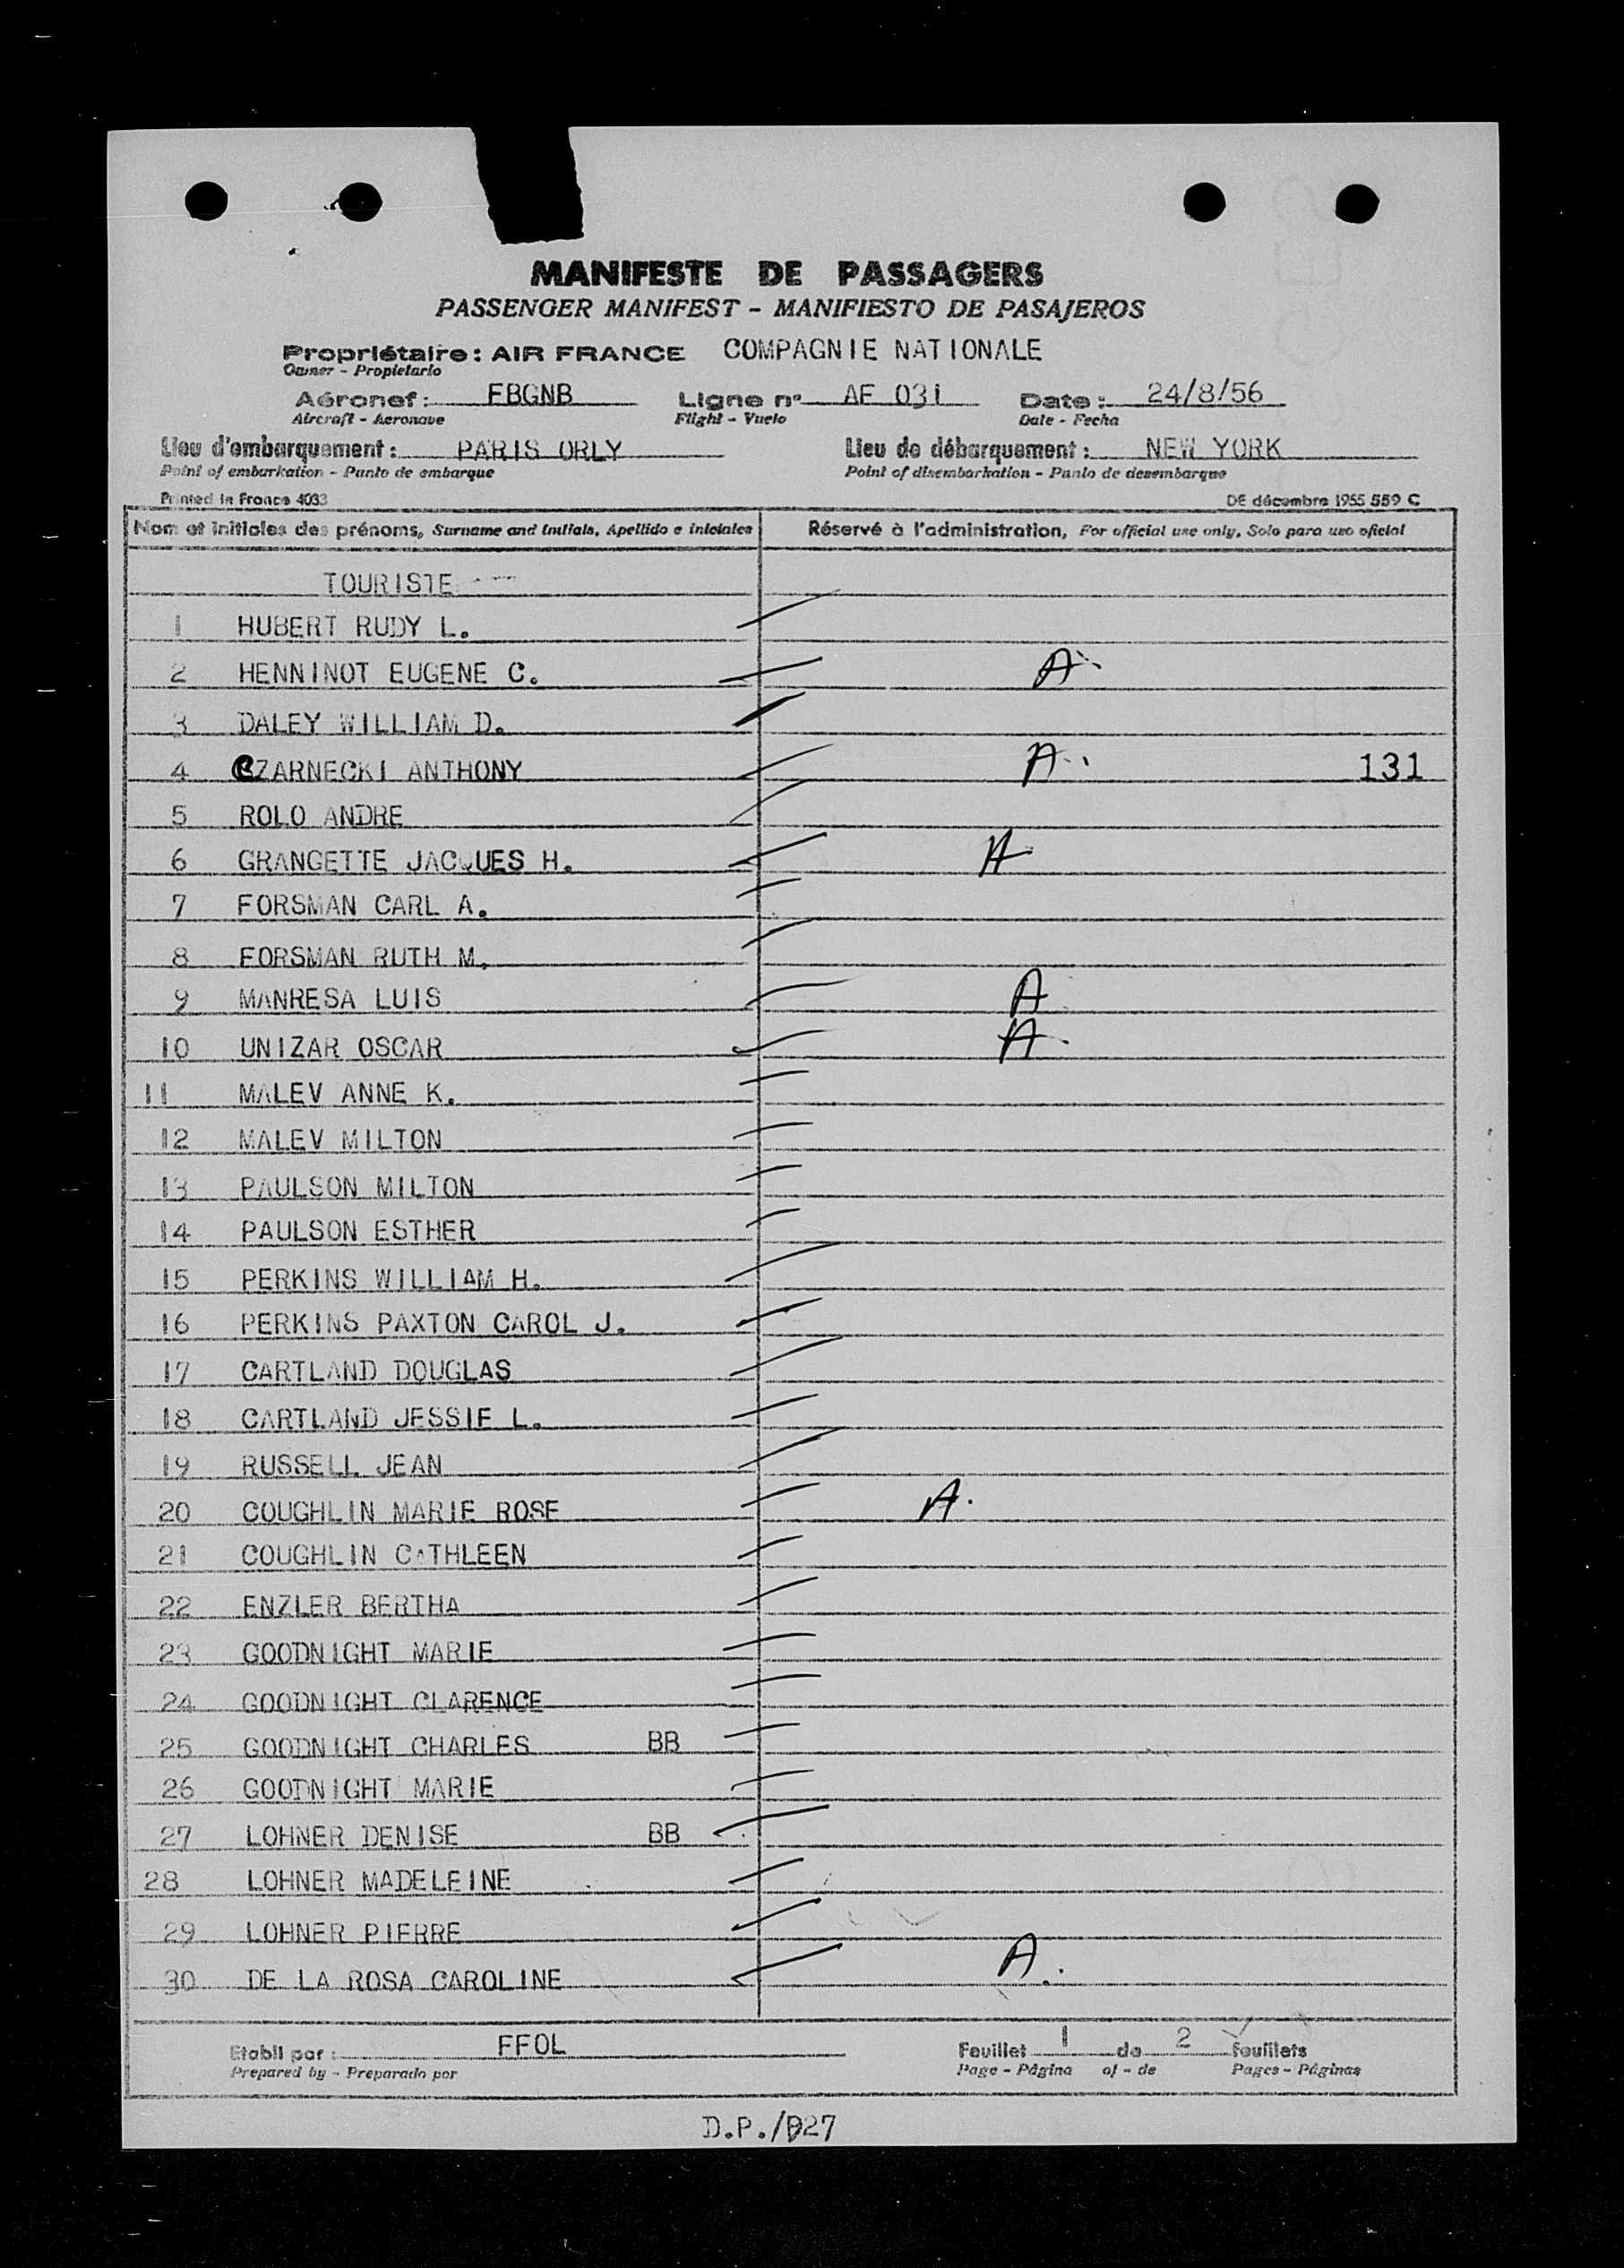 MANIFESTE DE PASSAGERS
PASSENGER MANIFEST - MANIFIESTO DE PASAJEROS
Propriétaire : AIR FRANCE COMPAGNIE NATIONALE
Owner - Propietario
Aéronef : FBGNB Ligne n° AF 031 Date : 24/8/56
Aircraft - Aeronave Flight - Vuelo Date - Fecha
Lieu d'embarquement : PARIS ORLY Lieu de débarquement : NEW YORK
Point of embarkation - Punto de embarque Point of disembarkation - Punto de desembarque
Printed in France 4033 DE décembre 1955 559 C
Nom et initiales des prénoms, Surname and initials, Apellido e iniciales Réservé à l'administration, For official use only, Solo para uso oficial
TOURISTE
1 HUBERT RUDY L.
2 HENNINOT EUGENE C. A
3 DALEY WILLIAM D.
4 CZARNECKI ANTHONY A 131
5 ROLO ANDRE
6 GRANGETTE JACQUES H. A
7 FORSMAN CARL A.
8 FORSMAN RUTH M.
9 MANRESA LUIS A
10 UNIZAR OSCAR A
11 MALEV ANNE K.
12 MALEV MILTON
13 PAULSON MILTON
14 PAULSON ESTHER
15 PERKINS WILLIAM H.
16 PERKINS PAXTON CAROL J.
17 CARTLAND DOUGLAS
18 CARTLAND JESSIE L.
19 RUSSELL JEAN
20 COUGHLIN MARIE ROSE A.
21 COUGHLIN CATHLEEN
22 ENZLER BERTHA
23 GOODNIGHT MARIE
24 GOODNIGHT CLARENCE
25 GOODNIGHT CHARLES BB
26 GOODNIGHT MARIE
27 LOHNER DENISE BB
28 LOHNER MADELEINE
29 LOHNER PIERRE
30 DE LA ROSA CAROLINE A.
Etabli par : FFOL Feuillet 1 de 2 feuillets
Prepared by - Preparado por Page - Página of - de Pages - Páginas
D.P./D27